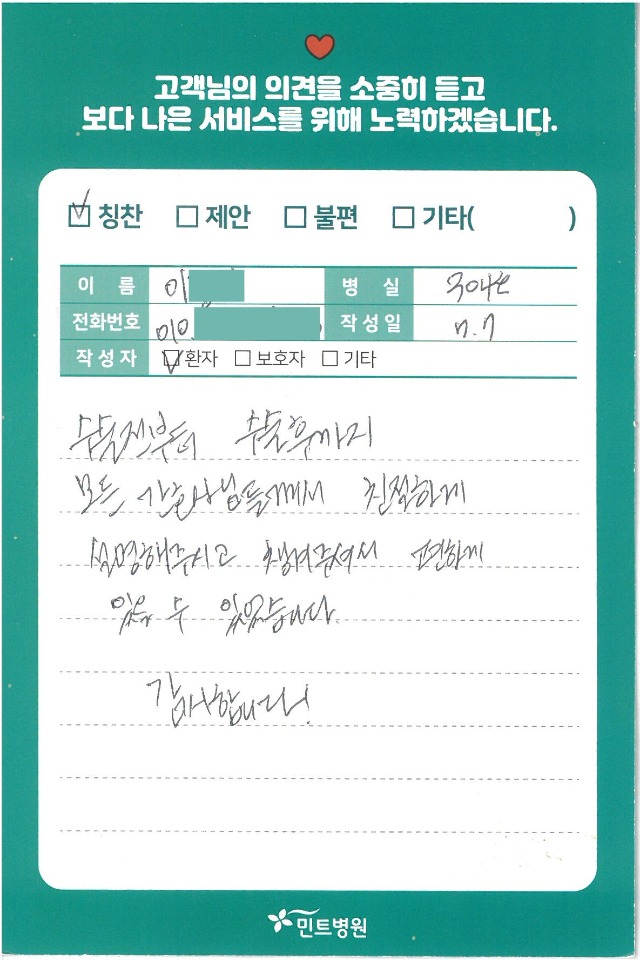 고객님의 의견을 소중히 듣고
보다 나은 서비스를 위해 노력하겠습니다.
칭찬 제안 불편 기타( )
이 름 이 병 실
전화번호 010. 작성일 7.7
작성자 환자 보호자 기타
수술전부터 수술후까지
모든 간호사님들께서 친절하게
설명해주시고 챙겨주셔서 편하게
있을 수 있었습니다.
감사합니다!
민트병원